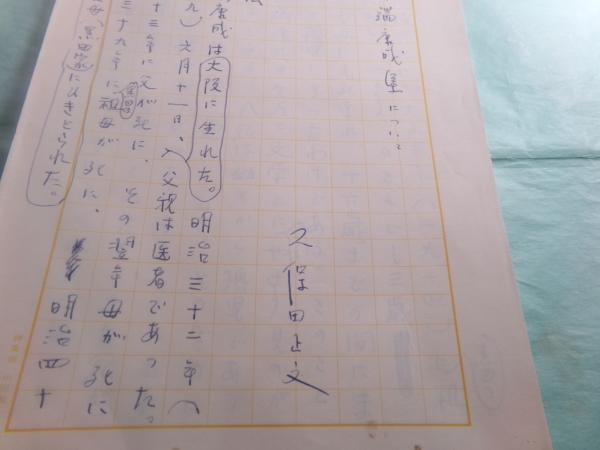 端康成集について
久保田正文
康成は大阪に生れた。明治三十二年(
九)六月十一日、父親は医者であった。
十三年に父が死に、その翌年母が死に
三十九年に祖母が死に、明治四十
母、黒田家にひきとられた。